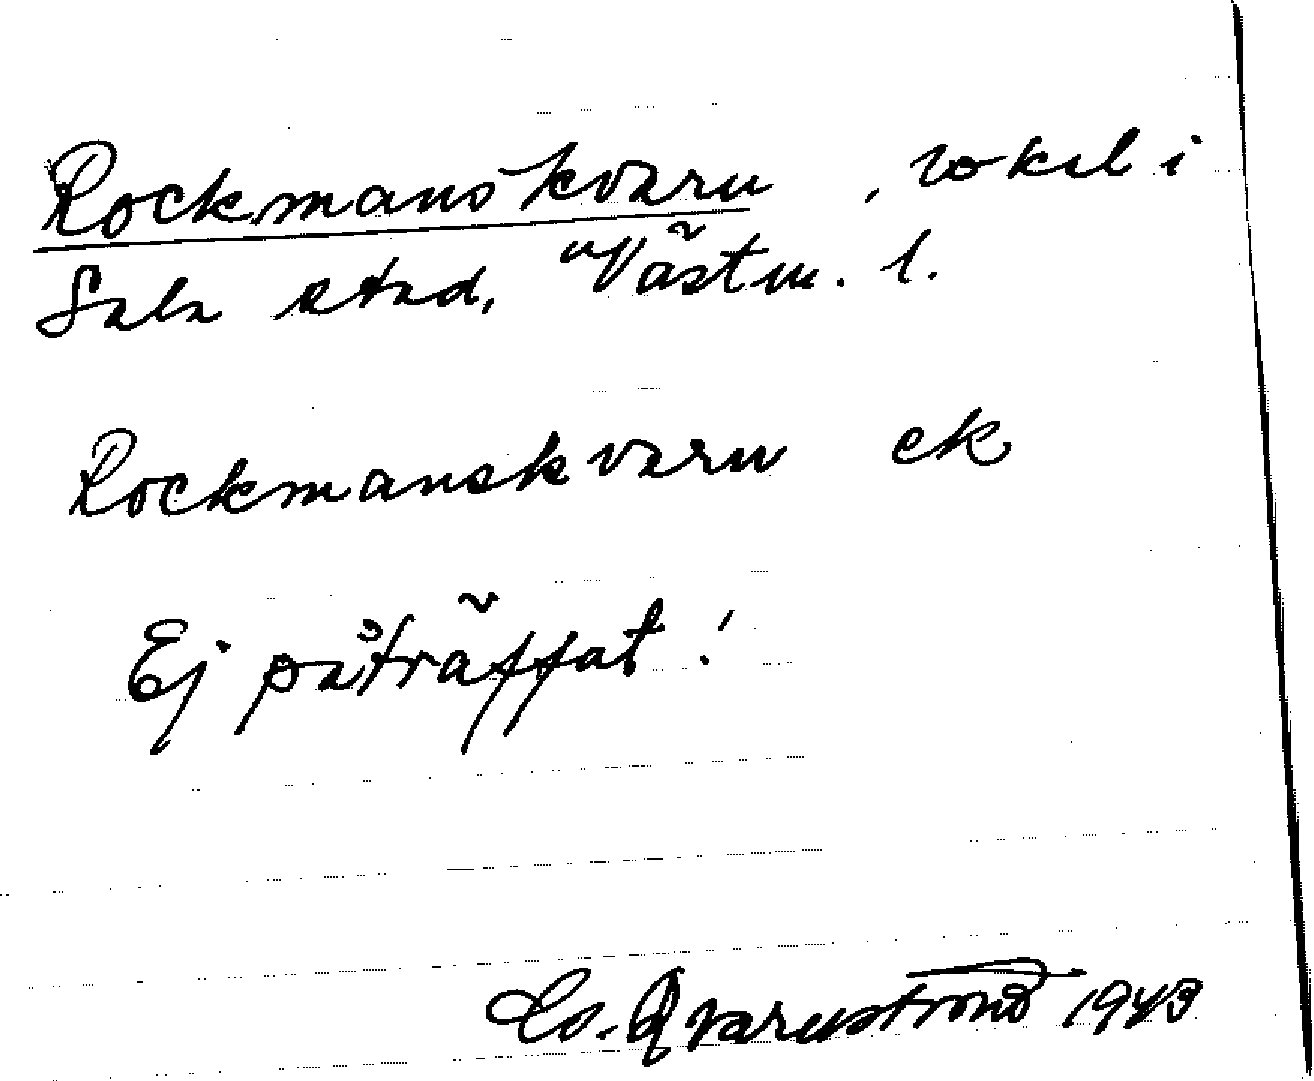 Rockmanskvarn, tokel i
Sala stad, Västm. l.
Rockmanskvarn ek
Ej påträffat!
Qvarnström 1943